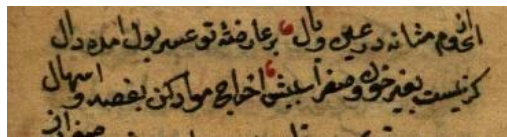 ای از ورم مثانه در عین وبال بر عارضهٔ تو عسر بول امده دال
کر نیست بغیر خون و صفرا سببش اخراج مواد کن بفصد و اسهال